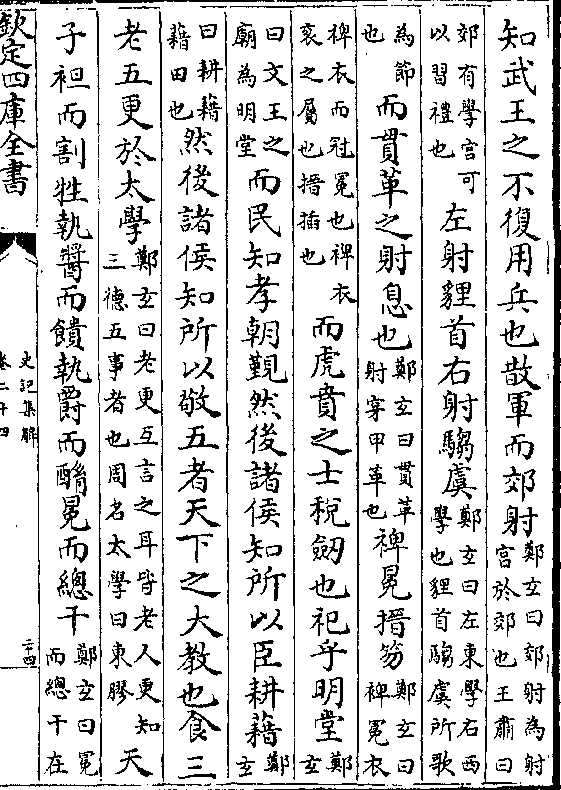 知武王之不復用兵也散軍而郊射鄭玄曰郊射為射宮於郊也王肅曰
郊有學宮可以習禮也左射貍首右射騶虞鄭玄曰左東學右西學也貍首騶虞所歌
為節也而貫革之射息也鄭玄曰貫革射穿甲革也裨冕搢笏鄭玄曰裨冕衣
裨衣而冠冕也裨衣衮之屬也搢插也而虎賁之士稅劔也祀乎明堂鄭玄
曰文王之廟為明堂而民知孝朝覲然後諸侯知所以臣耕藉鄭玄
曰耕藉藉田也然後諸侯知所以敬五者天下之大教也食三
老五更於太學鄭玄曰老更互言之耳皆老人更知三德五事者也周名太學曰東膠天
子袒而割牲執醬而饋執爵而酳冕而總干鄭玄曰冕而總干在
欽定四庫全書
史記集解
卷二十四
二十四